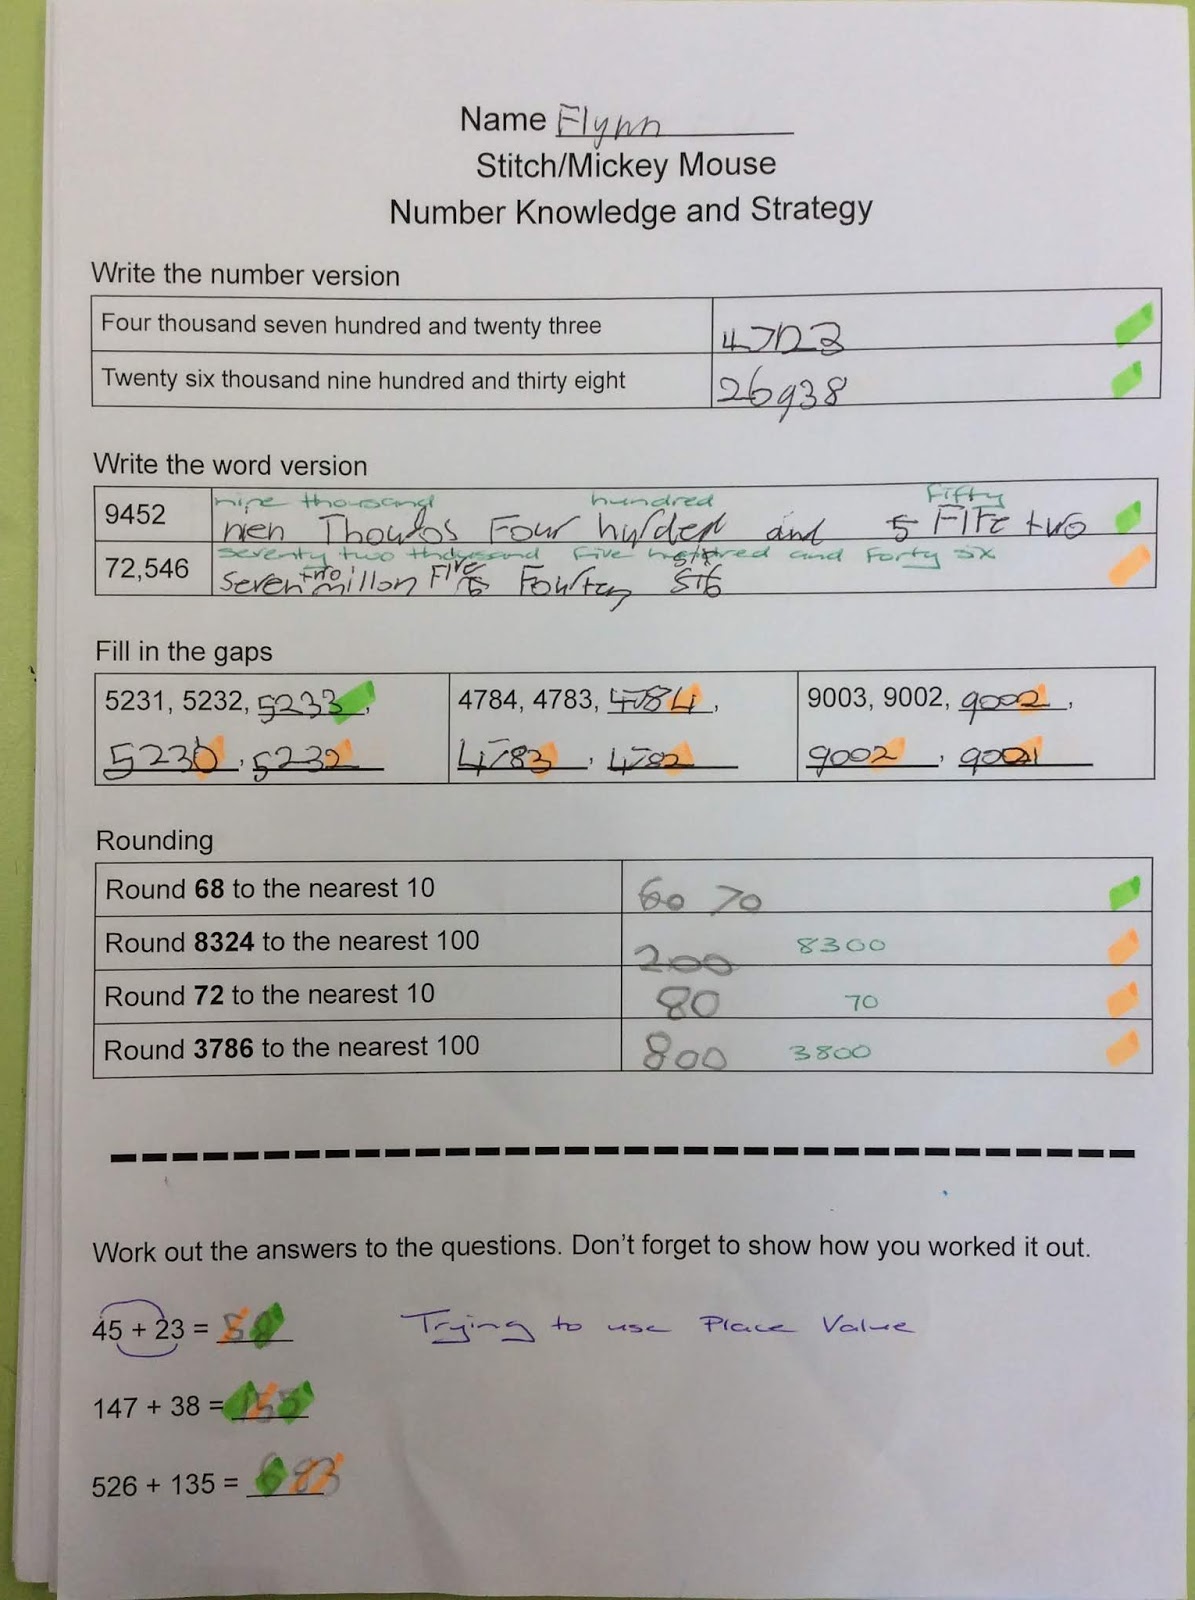 Name Flynn
Stitch/Mickey Mouse
Number Knowledge and Strategy
Write the number version
Four thousand seven hundred and twenty three 4723
Twenty six thousand nine hundred and thirty eight 26938
Write the word version
nine thousand hundred Fifty
9452 nien Four and 5 two
seventy two thousand Five hundred and Forty six
72,546 Seven two millon Five
Fill in the gaps
5231, 5232, 5233, 4784, 4783, 4784, 9003, 9002, 9002,
5230, 5232 4783, 4782 9002, 9001
Rounding
Round 68 to the nearest 10 60 70
Round 8324 to the nearest 100 200 8300
Round 72 to the nearest 10 80 70
Round 3786 to the nearest 100 800 3800
Work out the answers to the questions. Don't forget to show how you worked it out.
45 + 23 = 58 Trying to use Place Value
147 + 38 = 155
526 + 135 =